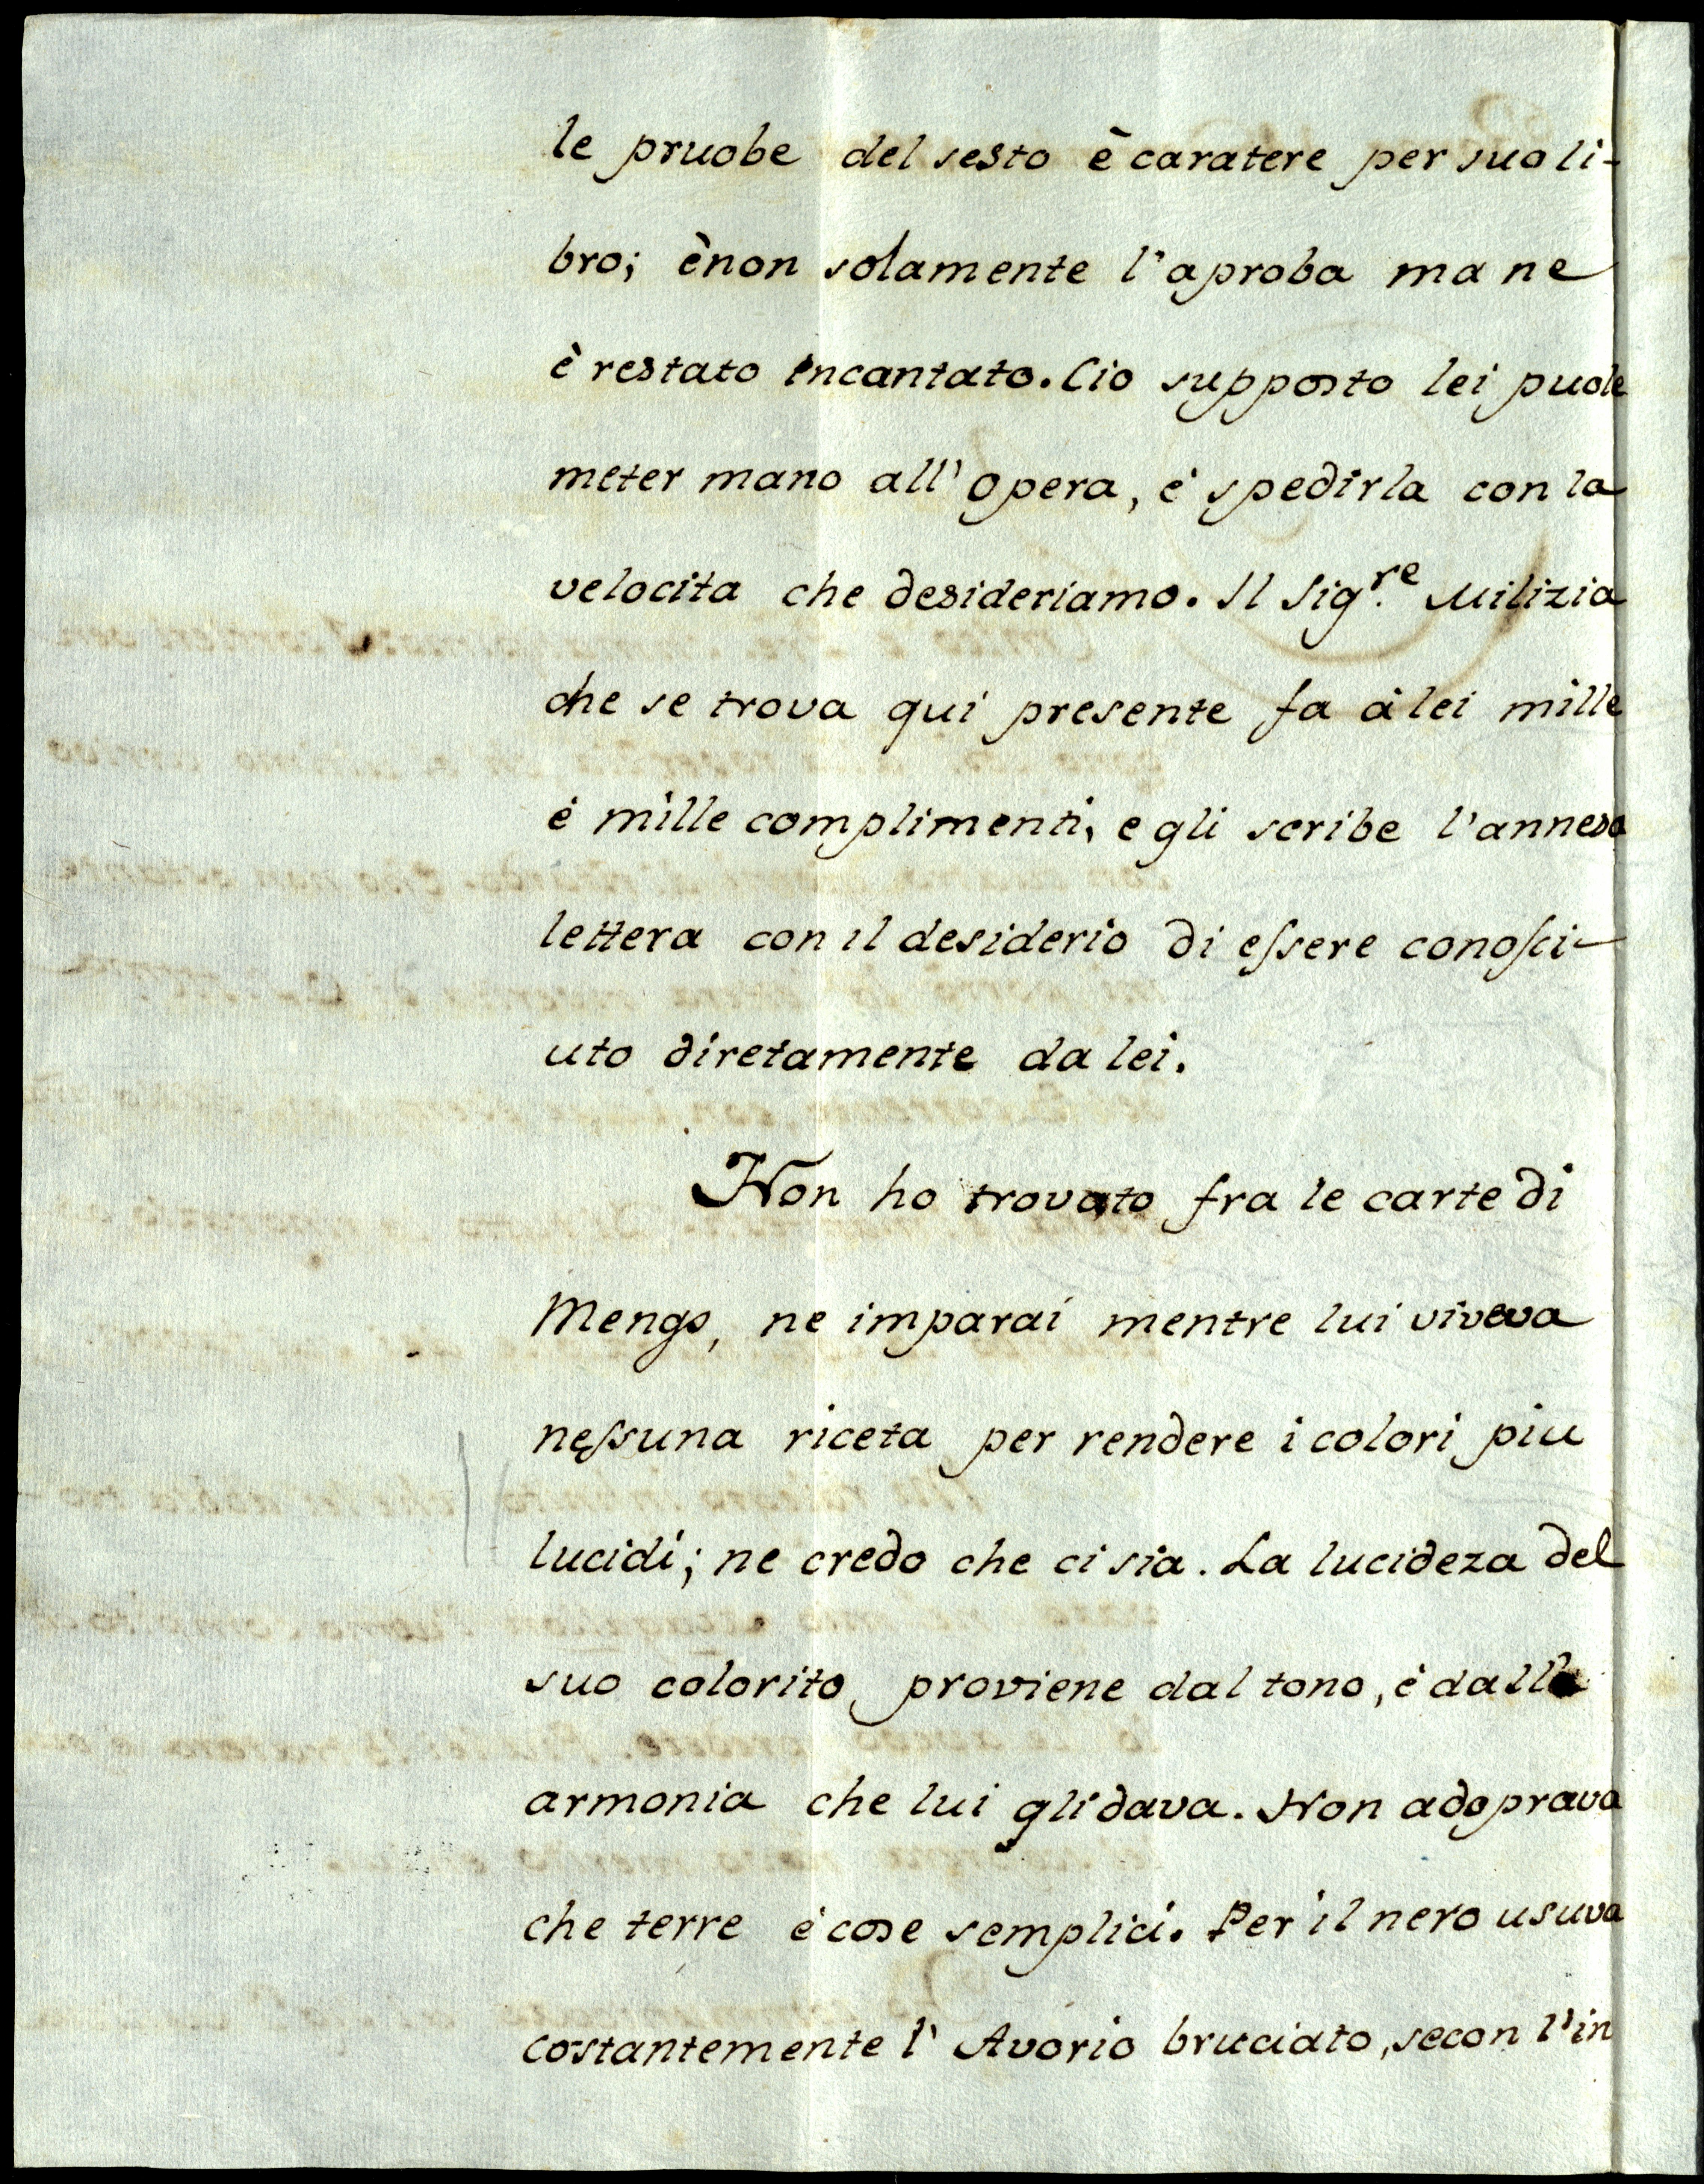 le pruobe del sesto è caratere per suo li-
bro; è non solamente l'aproba ma ne
è restato incantato. Cio supposto lei puole
meter mano all'opera, é spedirla con la
velocita che desideriamo. Il Sig.re Milizia
che se trova qui presente fa à lei mille
é mille complimenti, e gli scribe l'annesa
lettera con il desiderio di eſsere conoſci-
uto diretamente da lei.
Non ho trovato fra le carte di
Mengs, ne imparai mentre lui viveva
neſsuna riceta per rendere i colori piu
lucidi; ne credo che ci sia. La lucideza del
suo colorito, proviene dal tono, é dalla
armonia che lui gli dava. Non adoprava
che terre é cose semplici. Per il nero usuva
costantemente l' Avorio bruciato, secon l'in